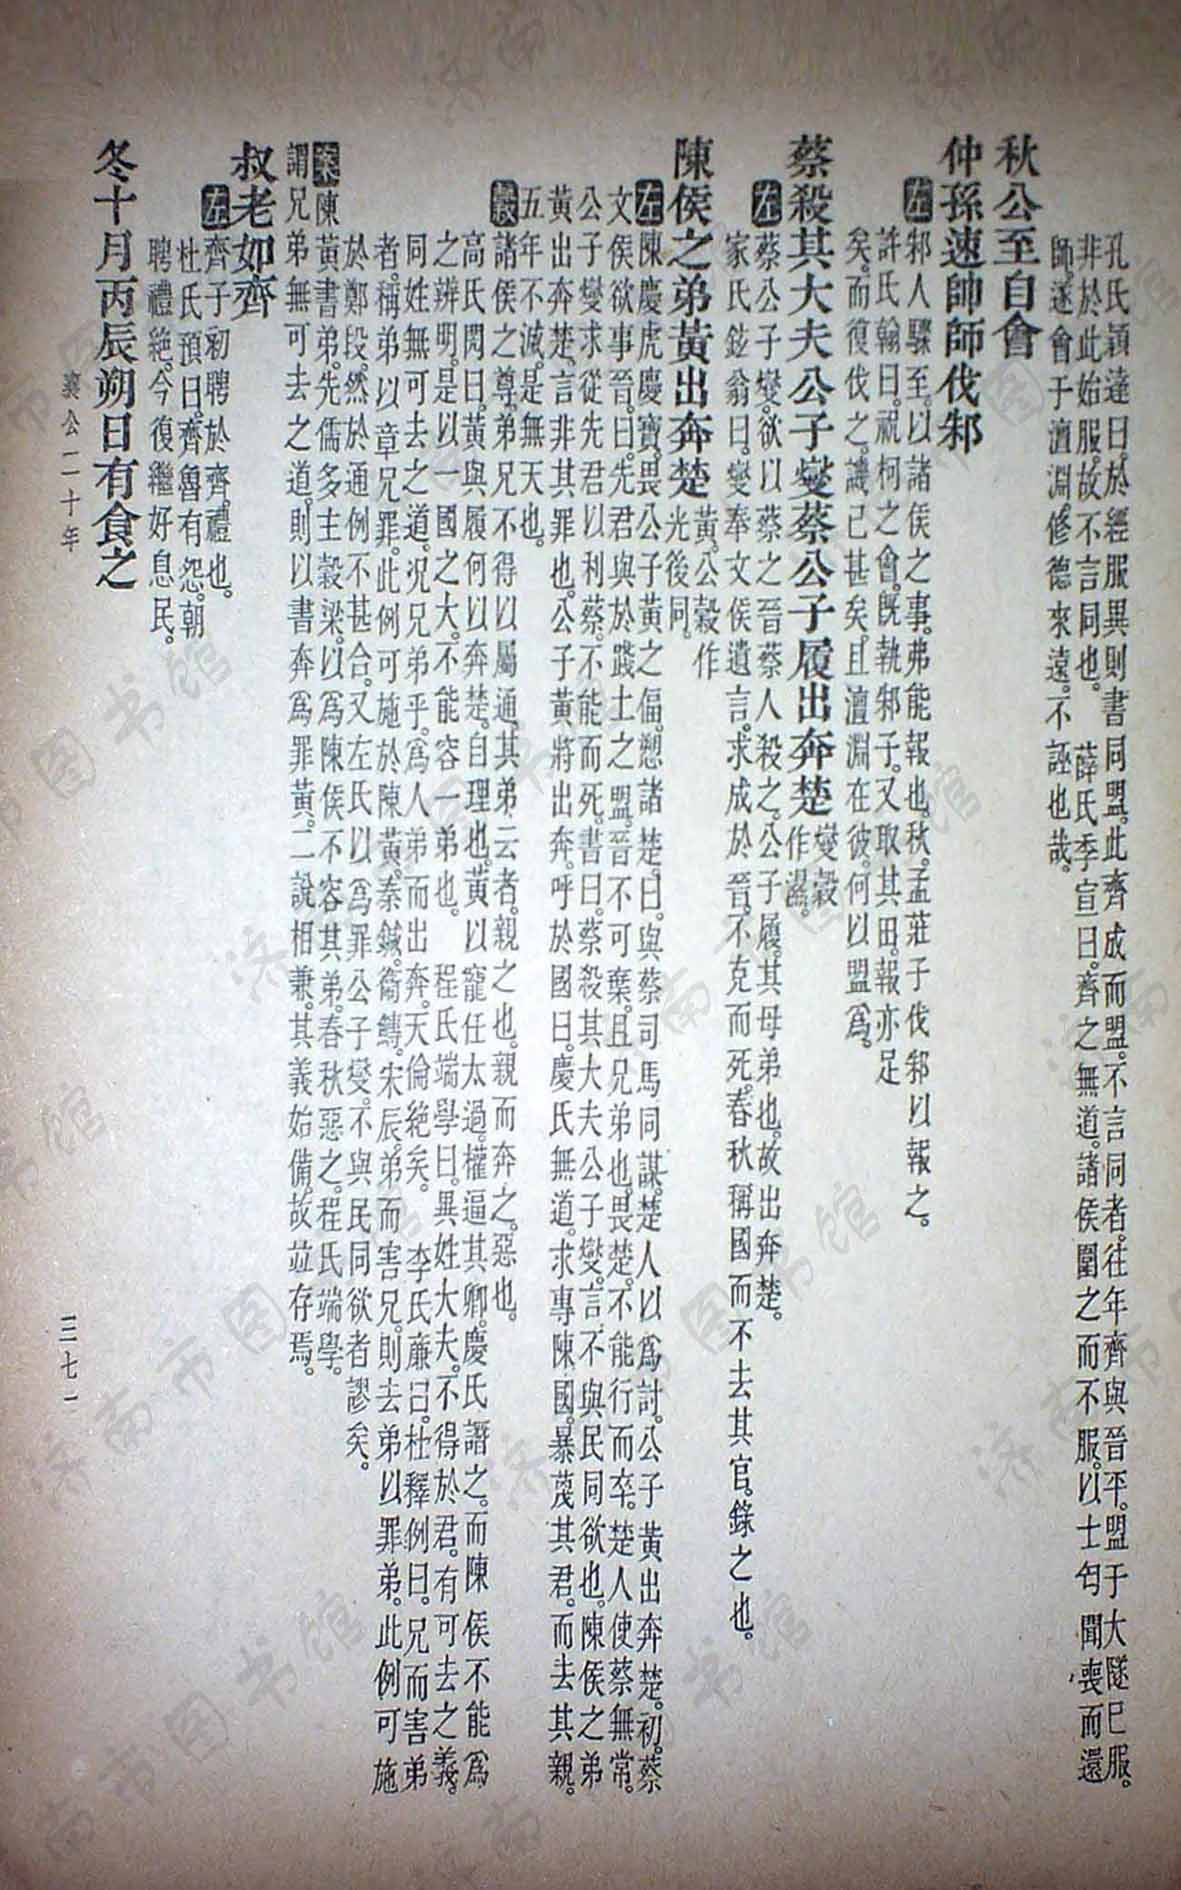 孔氏穎達曰。於經服異則書同盟。此齊成而盟。不言同者。往年齊與晉平。盟于大隧。已服。
非於此始服。故不言同也。　薛氏季宣曰。齊之無道。諸侯圍之而不服。以士匄聞喪而還
師。遂會于澶淵。修德來遠。不誣也哉。
秋公至自會
仲孫速帥師伐邾
左邾人驟至。以諸侯之事。弗能報也。秋。孟莊子伐邾以報之。
許氏翰曰。祝柯之會。既執邾子。又取其田。報亦足
矣。而復伐之。譏已甚矣。且澶淵在彼。何以盟爲。
蔡殺其大夫公子燮蔡公子履出奔楚燮穀
作濕。
左蔡公子燮。欲以蔡之晉。蔡人殺之。公子履。其母弟也。故出奔楚。
家氏鉉翁曰。燮奉文侯遺言。求成於晉。不克而死。春秋稱國而不去其官。錄之也。
陳侯之弟黃出奔楚黃。公穀作
光後同。
左陳慶虎慶寶。畏公子黃之偪。愬諸楚曰。與蔡司馬同謀。楚人以爲討。公子黃出奔楚。初。蔡
文侯欲事晉。曰。先君與於踐土之盟。晉不可棄。且兄弟也。畏楚。不能行而卒。楚人使蔡無常。
公子燮求從先君以利蔡。不能而死。書曰。蔡殺其大夫公子燮。言不與民同欲也。陳侯之弟
黃出奔楚。言非其罪也。公子黃將出奔。呼於國曰。慶氏無道。求專陳國。暴蔑其君。而去其親。
五年不滅。是無天也。
穀諸侯之尊。弟兄不得以屬通。其弟云者。親之也。親而奔之。惡也。
高氏閌曰。黃與履何以奔楚。自理也。黃以寵任太過。權逼其卿。慶氏譖之。而陳侯不能爲
之辨明。是以一國之大。不能容一弟也。　程氏端學曰。異姓大夫。不得於君。有可去之義。
同姓無可去之道。況兄弟乎。爲人弟而出奔。天倫絕矣。　李氏廉曰。杜釋例曰。兄而害弟
者。稱弟以章兄罪。此例可施於陳黃。秦鍼。衞鱄。宋辰。弟而害兄。則去弟以罪弟。此例可施
於鄭段。然於通例不甚合。又左氏以爲罪公子燮。不與民同欲者謬矣。
案陳黃書弟。先儒多主穀梁。以爲陳侯不容其弟。春秋惡之。程氏端學。
謂兄弟無可去之道。則以書奔爲罪黃。二說相兼。其義始備。故竝存焉。
叔老如齊
左齊子初聘於齊。禮也。
杜氏預曰。齊魯有怨。朝
聘禮絕。今復繼好息民。
冬十月丙辰朔日有食之
襄公二十年
三七一
济南市图书馆